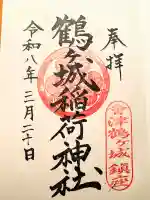 奉拝
鶴ヶ城稲荷神社
令和八年三月二十日
会津鶴ヶ城
鎮座